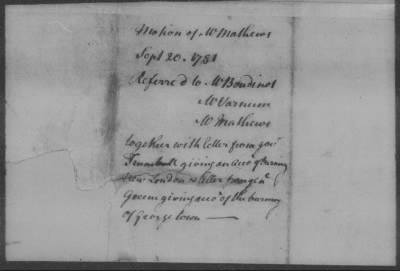 Motion of Mr Mathews
Sept 20. 1781
Referred to Mr Boudinot
Mr Varnum
Mr Mathews
together with letter from govr
Trumbull giving an acco of burning
New London & letter from genl
Green giving acco of the burning
of George town